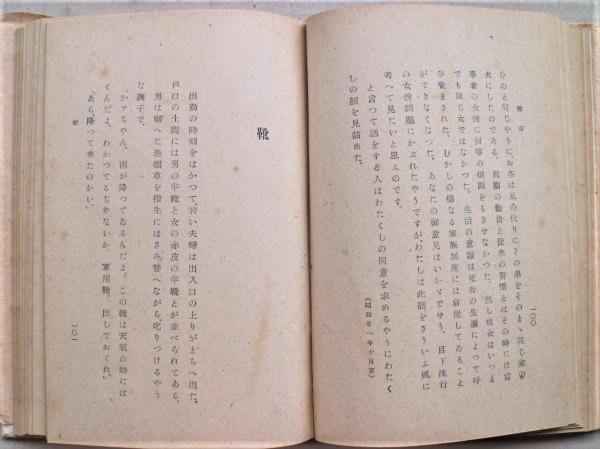 一〇〇
むのと同じやうに、お冬は兄の代りにその弟をそのまゝ同じ家の
夫にしたのである。雨親の勧告と従來の習慣とはその時には當
事者の女性に何等の煩悶をもさせなかつた。然し彼女はいつま
でも同じ女ではなかつた。生活の意識は死者の生還によつて呼
び覺まされた。むかしの儘なる家族制度には盲從してゐること
ができなくなつた。あなたの御意見はいかゞでせう。目下流行
の女性問題にかぶれたやうですが、わたしは此話をさういふ風に
考へて見たいと思ふのです。
と言つて話をする人はわたくしの同意を求めるやうにわたく
しの顏を見詰めた。
（昭和廿一年十月草）
靴
出勤の時刻をはかつて、若い夫婦は出入口の上りがまちへ出た。
戸口の土間には男の半靴と女の赤皮の半靴とが並べられてゐる。
男は啣へた卷烟草を指先にはさみ替へながら叱りつけるやう
な調子で、
「かアちやん。雨が降つてゐるんだよ。この靴は天氣の時には
くんだよ。わかつてゐるぢやないか。軍用靴、出しておくれ。」
「あら、降つて來たのかい。」
靴
一〇一